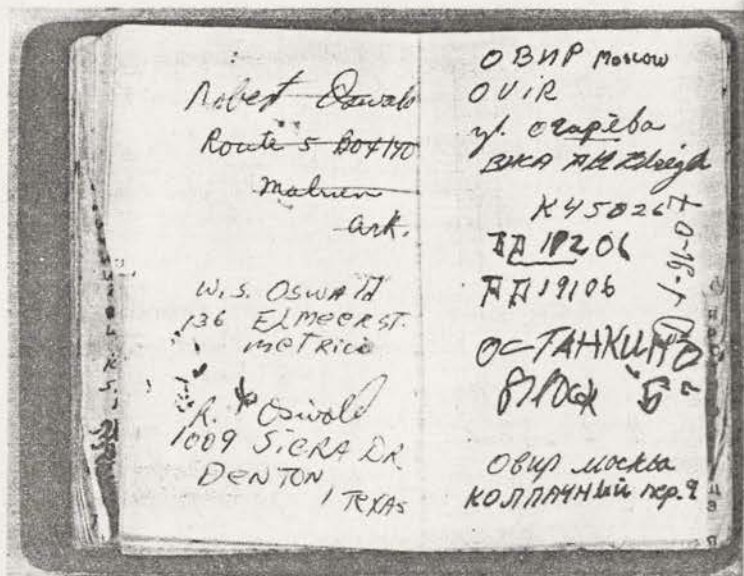 Robert Oswald
Route 5 Box 140
Malvern
Ark.
W.S. OSWALD
136 ELMEER ST.
METRICE
R. Oswald
1009 SiERA DR
DENTON
TEXAS
ОВИР Moscow
OViR
ул. огарёва
K45026
АД 19106
ОСТАНКИНО
ОВИР москва
КОЛПАЧНЫй пер. 9